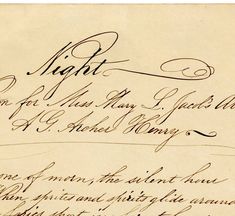 Night
on for Miss Mary L. Jacob's A
A G. Archer Henry
ne of morn, the silent hour
When, sprites and spirits glide around